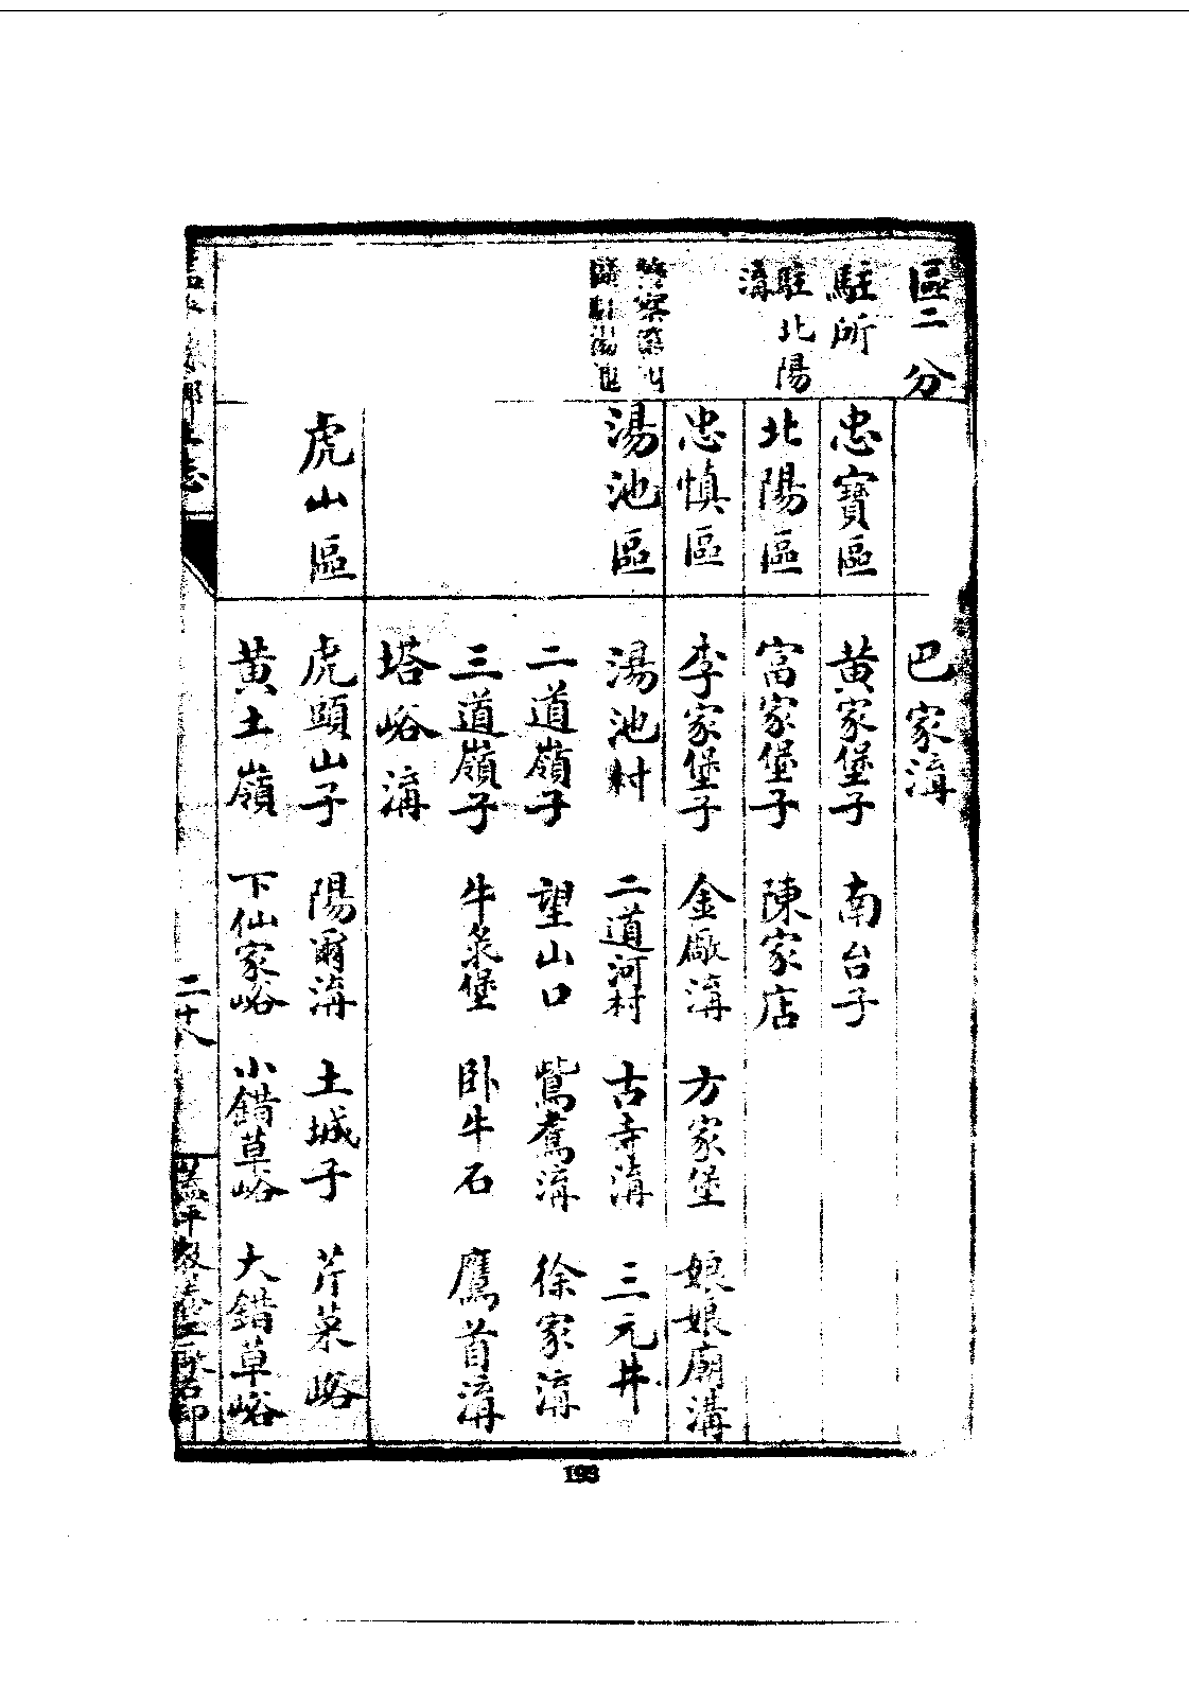 區二分 巴家溝
駐所 忠寶區 黃家堡子 南台子
駐北陽溝 北陽區 富家堡子 陳家店
忠慎區 李家堡子 金廠溝 方家堡 娘娘廟溝
警察第
區駐湯池 湯池區 湯池村 二道河村 古寺溝 三元井
二道嶺子 望山口 鴛鴦溝 徐家溝
三道嶺子 牛菉堡 卧牛石 鷹首溝
塔峪溝
虎山區 虎頭山子 陽爾溝 土城子 芹菜峪
黃土嶺 下仙家峪 小錯草峪 大錯草峪
土志
二十八
蓋平 石印
193